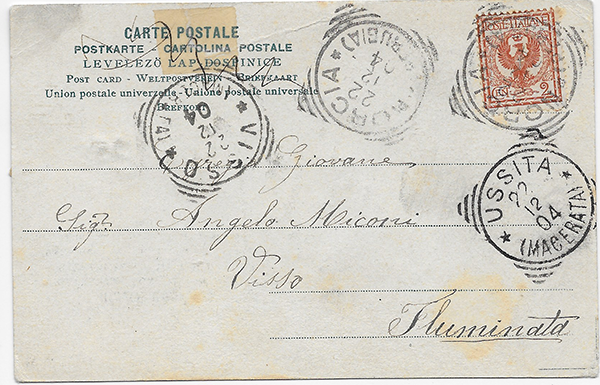 CARTE POSTALE
POSTKARTE - CARTOLINA POSTALE
LEVELEZŐ LAP DOPISNICE
POST CARD - WELTPOSTVEREIN - BRIEFKAART
Union postale universelle - Unione postale universale
BREFKORT
POSTE ITALIANE
CENT. 2
NORCIA
22 12 04
VISSO
22 12 04
USSITA
22 12 04
(MACERATA)
Giovane
Sigr Angelo Miconi
Visso
Fluminata